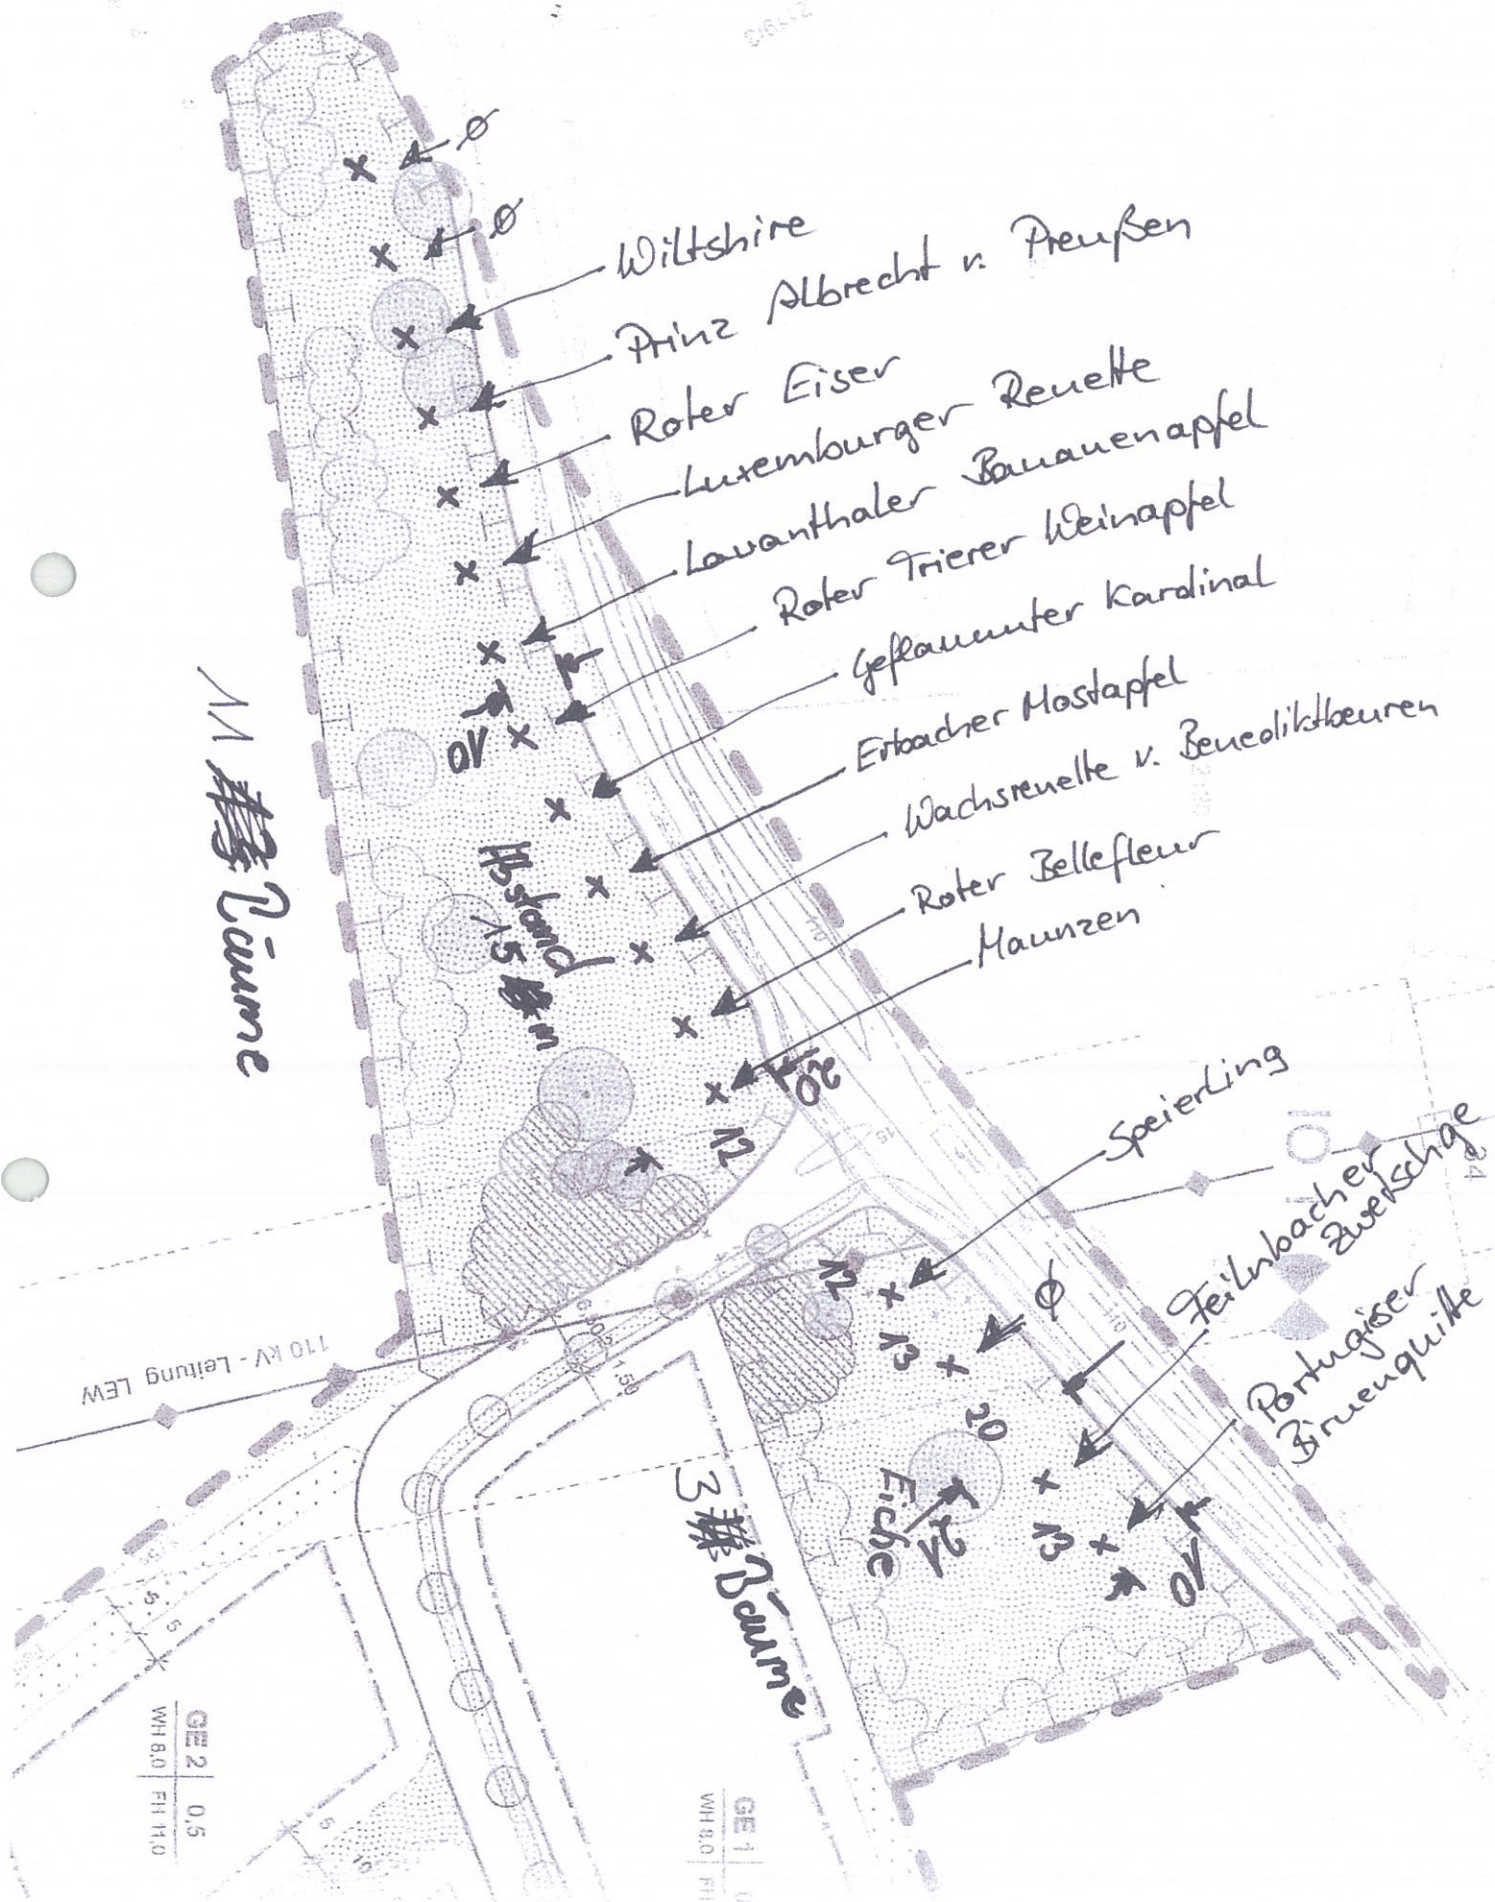 Ø
Ø
Wiltshire
Prinz Albrecht v. Preußen
Roter Eiser
Luxemburger Renette
Lavanthaler Bananenapfel
Roter Trierer Weinapfel
Geflammter Kardinal
Erbacher Mostapfel
Wachsrenette v. Benediktbeuren
Roter Bellefleur
Maunzen
Speierling
Ø
Feilnbacher
Zwetschge
Portugieser
Birnenquitte
11 Bäume
10
Abstand
15 m
20
12
12
13
20
Eiche
21
13
10
3 Bäume
110 kV - Leitung LEW
150
110
110
5
5
5
10
GE 2 0,5
WH 8,0 FH 11,0
GE 1 0
WH 8,0 FH